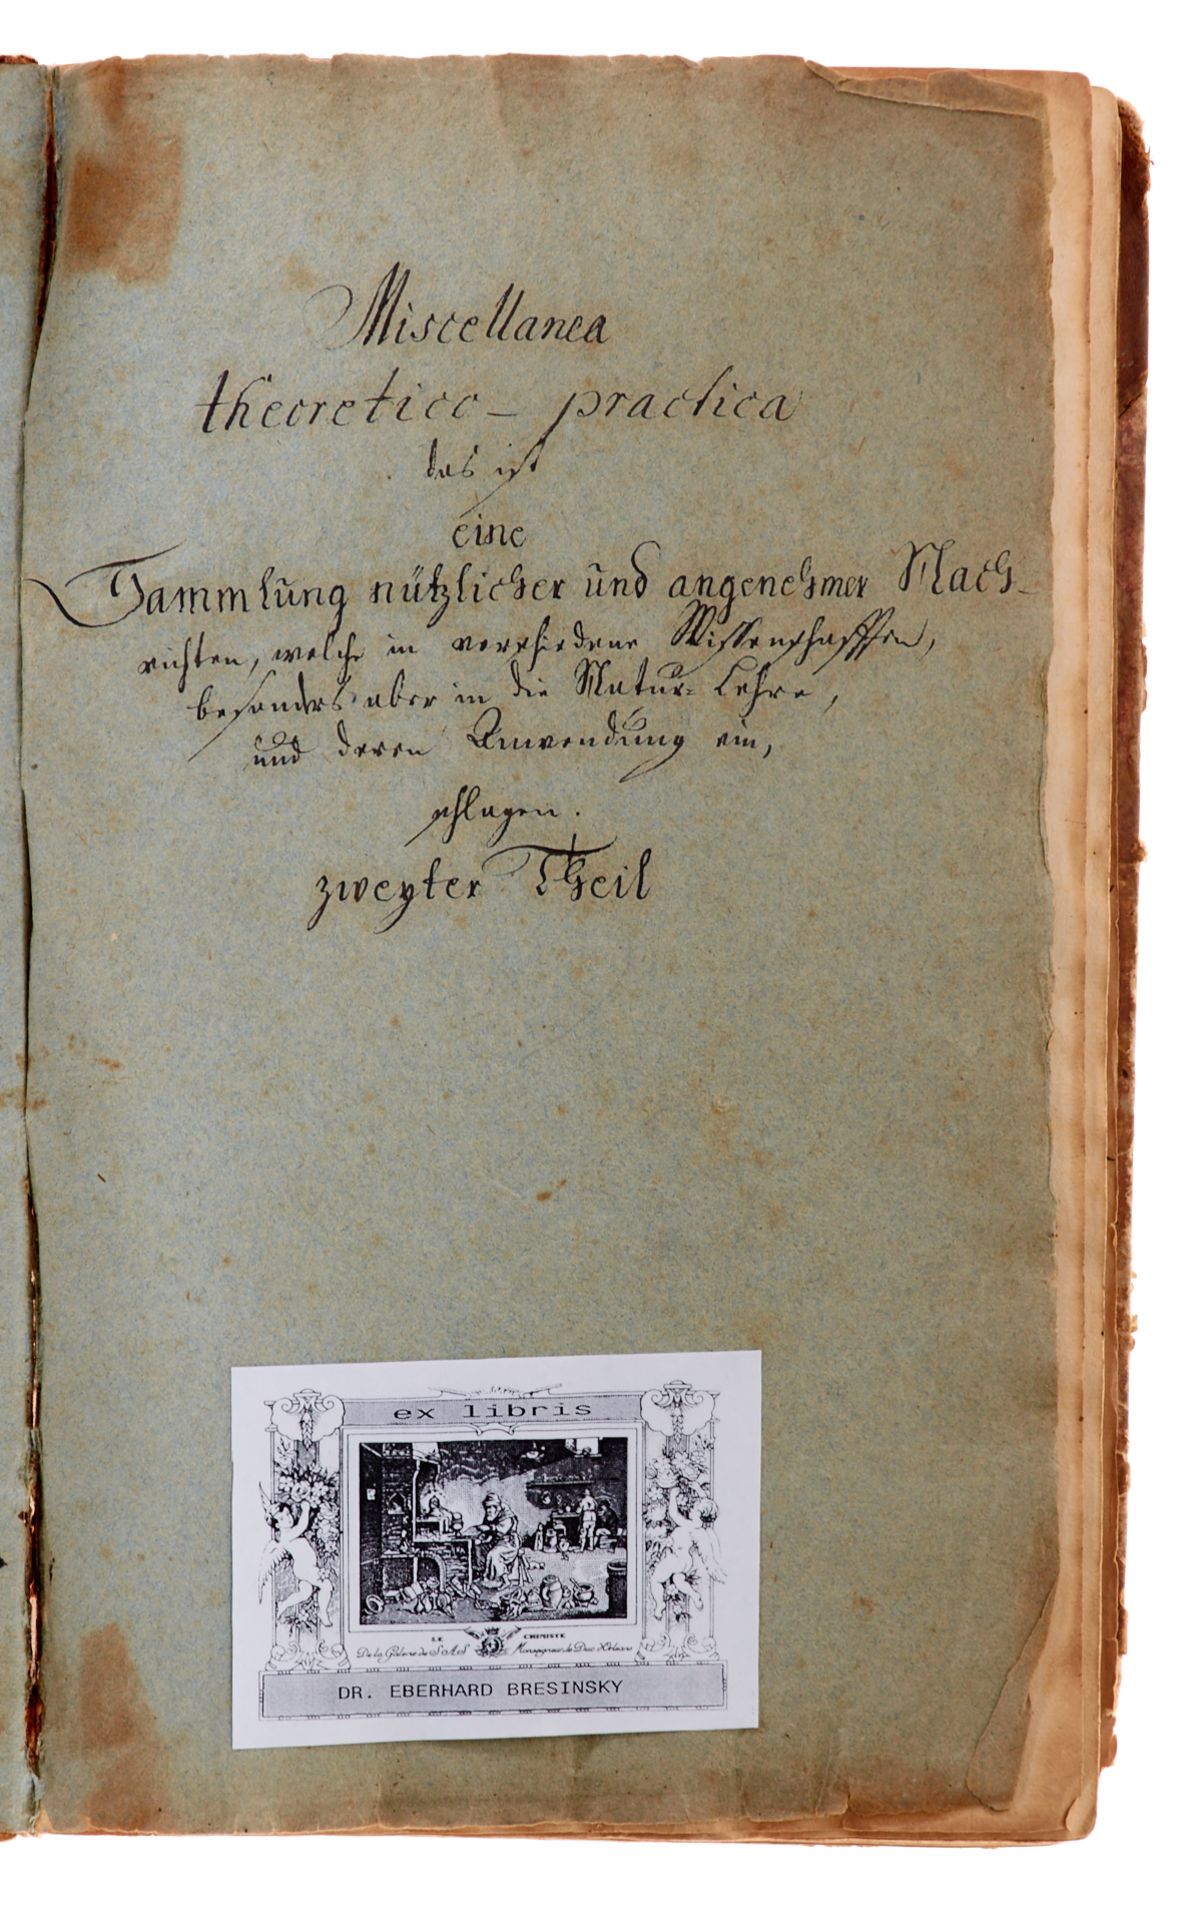 Miscellanea
theoretico- practica
das ist
eine
Sammlung nützlicher und angenehmer Nach-
richten, welche in verschiedene Wissenschafften,
besonders aber in die Natur-Lehre,
und deren Anwendung ein,
schlagen.
zweyter Theil
ex libris
LE CHIMISTE
De la Galerie de S A S Monseigneur le Duc d'Orleans
DR. EBERHARD BRESINSKY